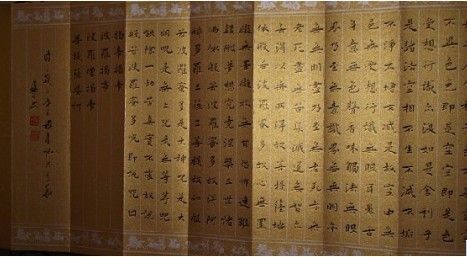 不異色色即是空空即是色
受想行識亦復如是舍利子
是諸法空相不生不滅不垢
不淨不增不減是故空中無
色無受想行識無眼耳鼻舌
身意無色聲香味觸法無眼
界乃至無意識界無無明亦
無無明盡乃至無老死亦無
老死盡無苦集滅道無智亦
無得以無所得故菩提薩埵
依般若波羅蜜多故心無罣
礙無罣礙故無有恐怖遠離
顛倒夢想究竟涅槃三世諸
佛依般若波羅蜜多故得阿
耨多羅三藐三菩提故知般
若波羅蜜多是大神咒是大
明咒是無上咒是無等等咒
能除一切苦真實不虛故說
般若波羅蜜多咒即說咒曰
揭帝揭帝
波羅揭帝
波羅僧揭帝
菩提薩婆訶